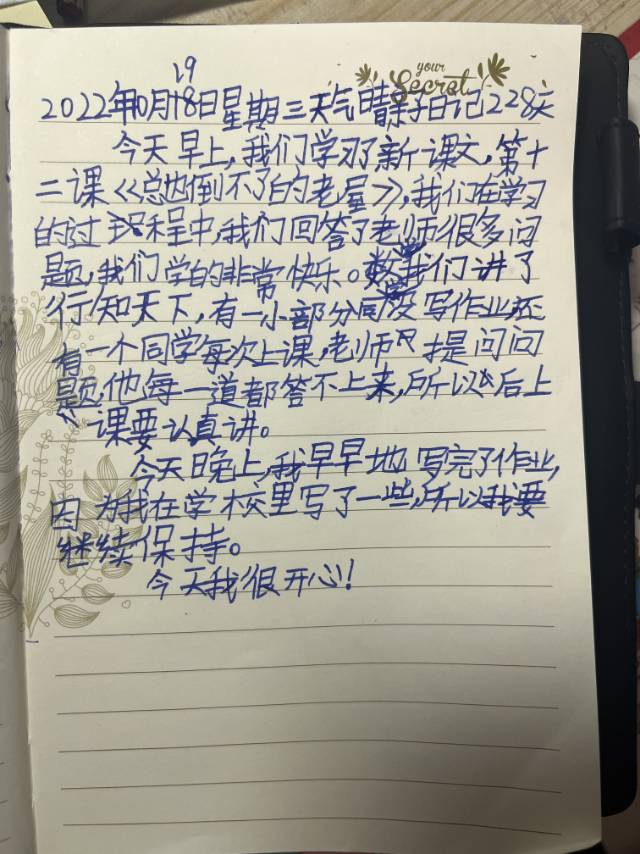 your
Secret
19
2022年10月18日星期三天气晴字日记228天
今天早上，我们学习了新课文，第十
二课《总也倒不了的老屋》，我们在学习
的过程中，我们回答了老师很多问
题，我们学的非常快乐。数我们讲了
行知天下，有一小部分同没写作业，还
有一个同学每次上课，老师只提问问
题，他每一道都答不上来，所以以后上
课要认真讲。
今天晚上，我早早地写完了作业，
因为我在学校里写了一些，所以我要
继续保持。
今天我很开心！